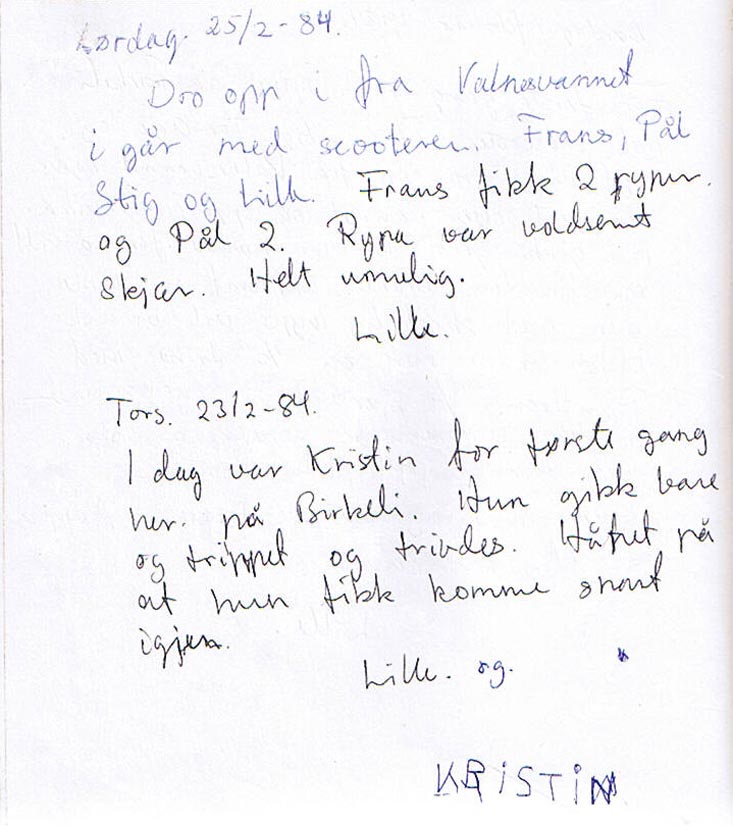 Lørdag. 25/2-84.
Dro opp i fra Valnesvannet
i går med scooteren. Frans, Pål
Stig og Lill. Frans fikk 2 ryper.
og Pål 2. Rypa var voldsomt
skjær. Helt umulig.
Lill.
Tors. 23/2-84.
I dag var Kristin for første gang
her. på Birkeli. Hun gikk bare
og trippet og trivdes. Håpet på
at hun fikk komme snart
igjen.
Lill. og.
KRiSTiN